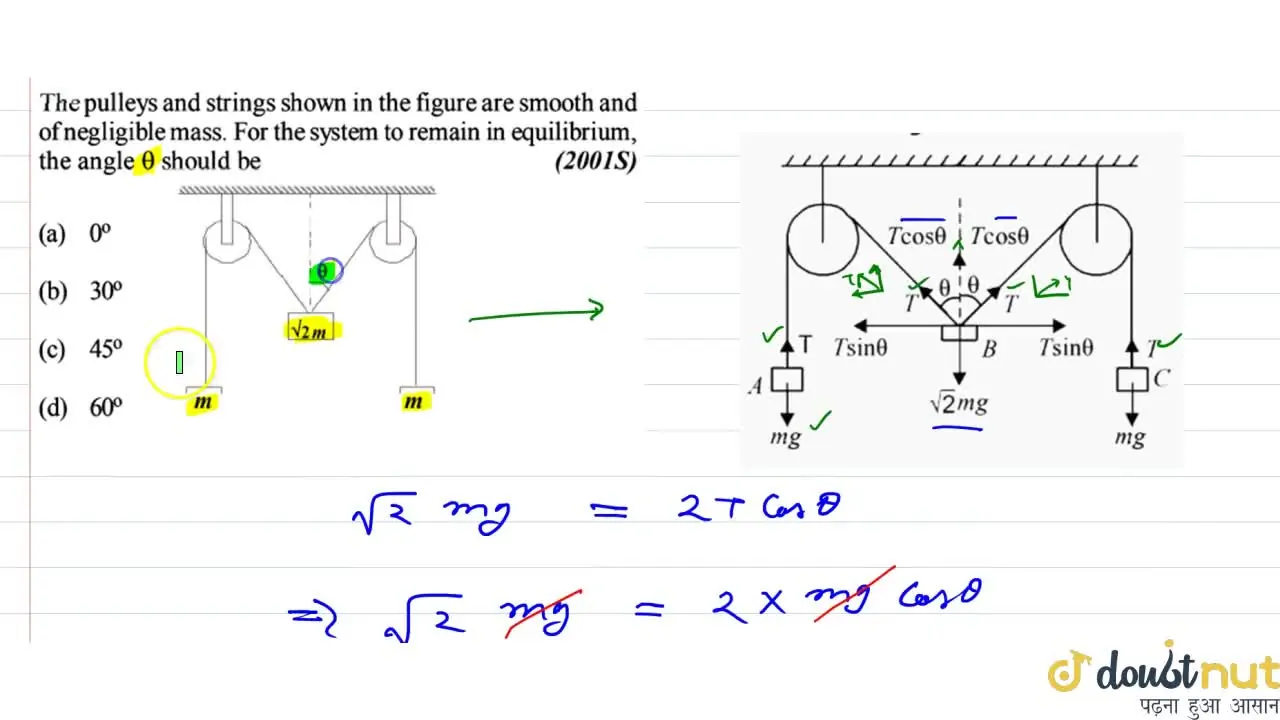 The pulleys and strings shown in the figure are smooth and
of negligible mass. For the system to remain in equilibrium,
the angle θ should be (2001S)
(a) 0º
(b) 30º
(c) 45º
(d) 60º
θ
√2 m
m m
Tcosθ Tcosθ
T T
θ θ
T T
Tsinθ B Tsinθ
T T
A C
√2 mg
mg mg
√2 mg = 2T cosθ
⇒ √2 mg = 2 × mg cosθ
doubtnut
पढ़ना हुआ आसान